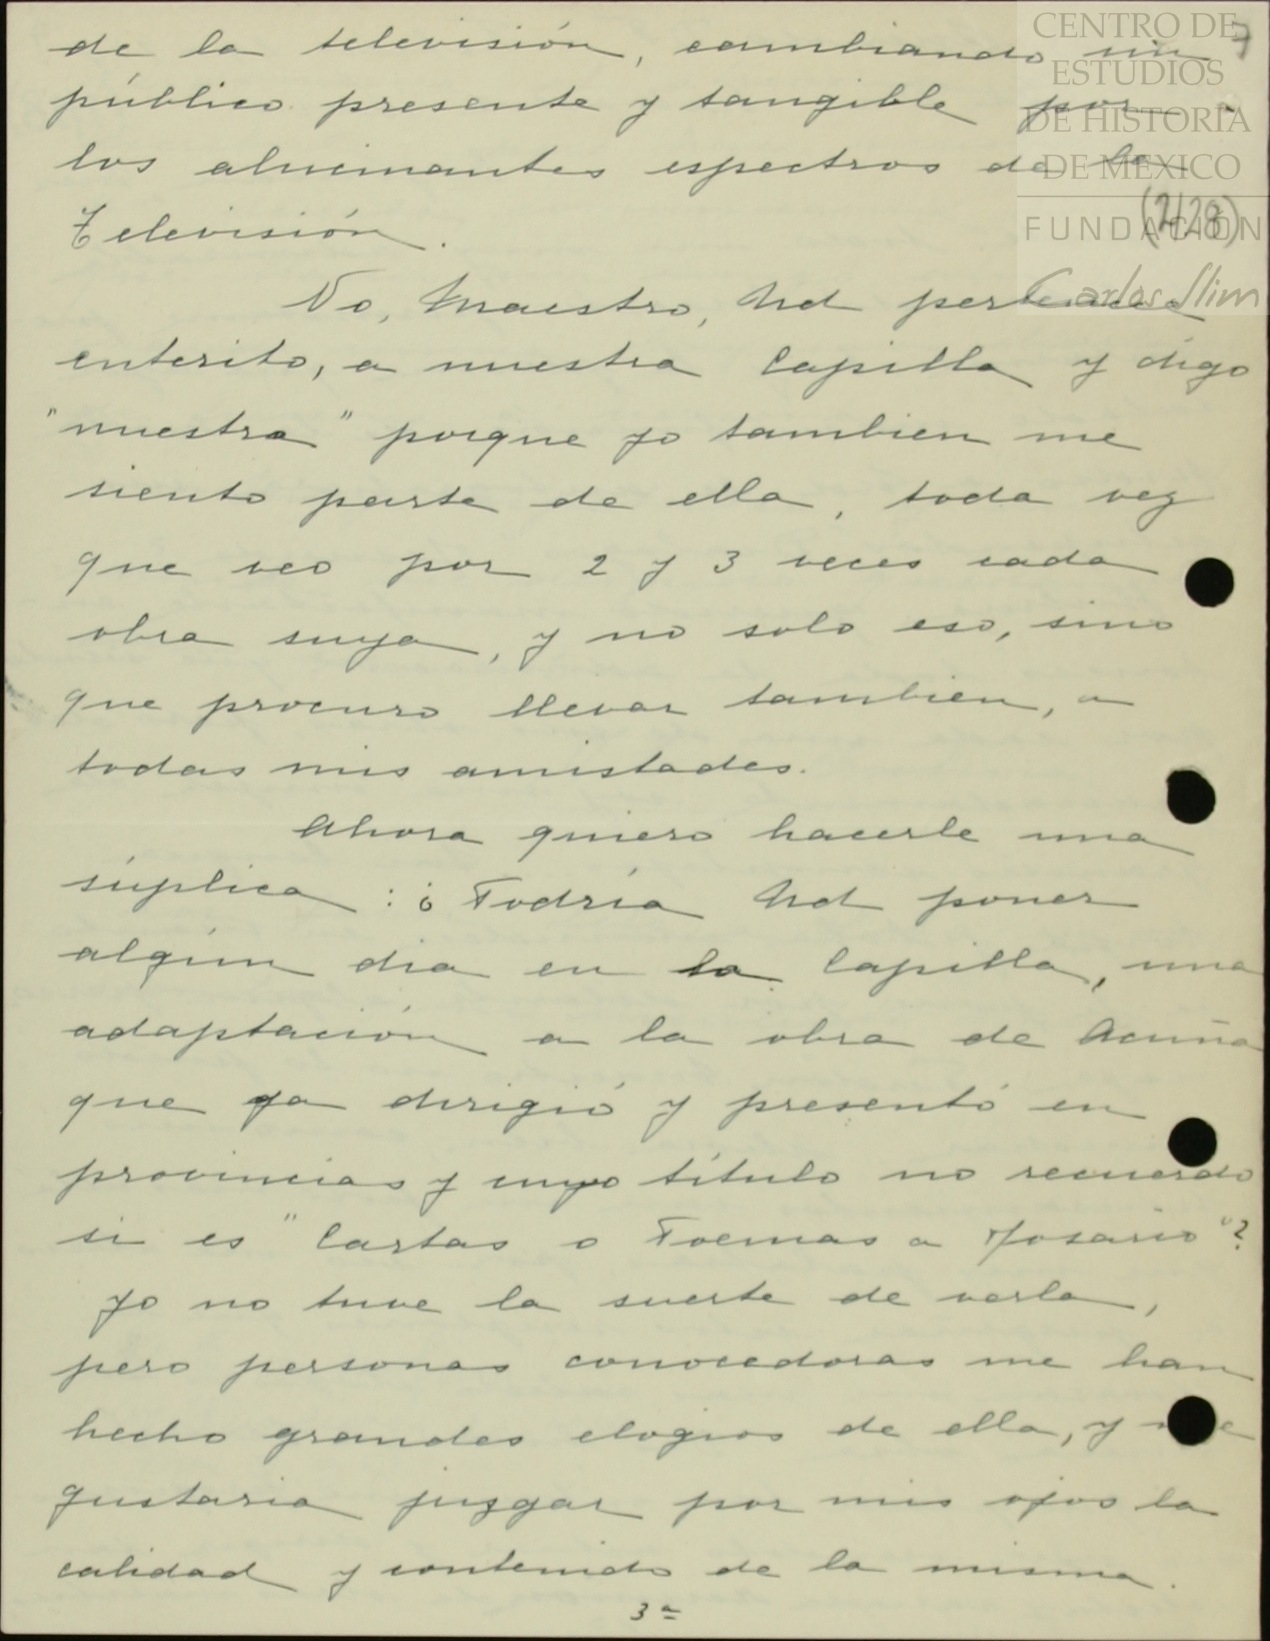 CENTRO DE
ESTUDIOS
DE HISTORIA
DE MÉXICO
FUNDACIÓN
Carlos Slim
7
(2128)
de la televisión, cambiando un
público presente y tangible por
los alucinantes espectros de la
Televisión.
No, Maestro, Ud pertenece
enterito, a nuestra Capilla y digo
"nuestra" porque yo tambien me
siento parte de ella, toda vez
que veo por 2 y 3 veces cada
obra suya, y no solo eso, sino
que procuro llevar tambien, a
todas mis amistades.
Ahora quiero hacerle una
súplica : ¿Podría Ud poner
algún dia en la Capilla, una
adaptación a la obra de Acuña
que ya dirigió y presentó en
provincias y cuyo título no recuerdo
si es "Cartas o Poemas a Rosario"?
Yo no tuve la suerte de verla,
pero personas conocedoras me han
hecho grandes elogios de ella, y me
gustaria juzgar por mis ojos la
calidad y contenido de la misma.
3ª